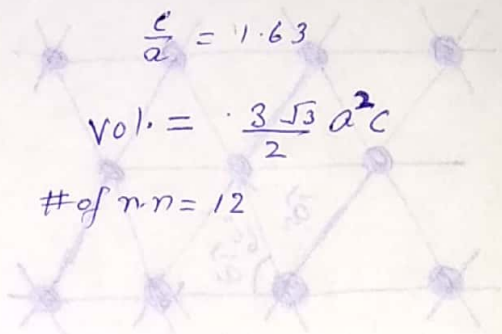 c/a = 1.63
vol. = 3√3/2 a²c
# of n.n = 12